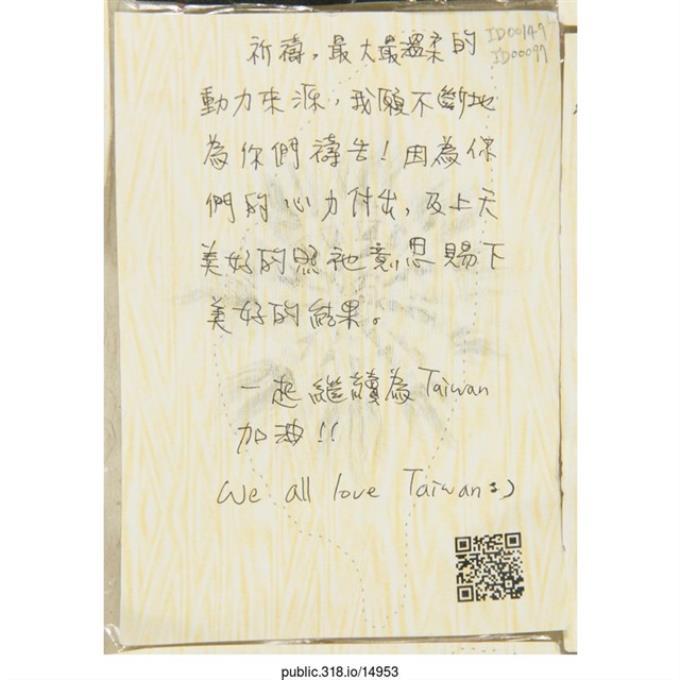 ID001497
ID00097
祈禱，最大最溫柔的
動力來源，我願不斷地
為你們禱告！因為你
們的心力付出，及上天
美好的照祂意思賜下
美好的結果。
一起繼續為Taiwan
加油！！
We all love Taiwan :)
public.318.io/14953